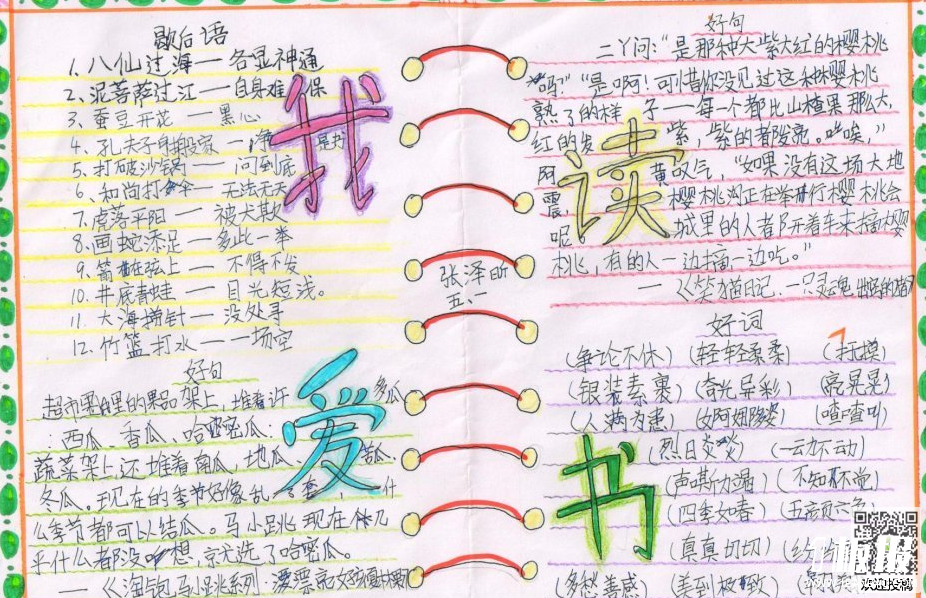 歇后语
1. 八仙过海 — 各显神通
2、泥菩萨过江 — 自身难保
3、蚕豆开花 — 黑心
4、孔夫子搬家 — 净是书
5、打破沙锅 — 问到底
6、和尚打伞 — 无法无天
7、虎落平阳 — 被犬欺
8、画蛇添足 — 多此一举
9、箭在弦上 — 不得不发
10、井底青蛙 — 目光短浅。
11、大海捞针 — 没处寻
12、竹篮打水 — 一场空
我
好句
超市里的果品架上,堆着许多瓜
:西瓜、香瓜、哈密瓜;
蔬菜架上还堆着南瓜、地瓜、苦瓜、
冬瓜。现在的季节好像乱了套,什
么季节都可以结瓜。马小跳现在几
乎什么都没想,就选了哈密瓜。
—《淘气包马小跳系列:漂亮女孩夏林果
爱
张泽昕
五、一
好句
二丫问:“是那种大紫大红的樱桃
吗?”“是啊!可惜你没见过这种樱桃
熟了的样子——每一个都比山楂果那么大,
红的发紫,紫的都发亮。”“唉,”
阿黄叹气,“如果没有这场大地
震,樱桃沟正在举行樱桃会
呢,城里的人都开着车来摘樱
桃,有的人一边摘一边吃。”
—《笑猫日记、一只出的猫
读
好词
(争论不休) (轻轻柔柔) (打摸)
(银装素裹) (奇光异彩) (亮晃晃)
(人满为患) (婀娜多姿) (喳喳叫)
(烈日炎炎) (一动不动)
(声嘶力竭) (不知不觉)
(四季如春) (五颜六色)
(真真切切)
(多愁善感) (美到极致)
书
欢迎投稿